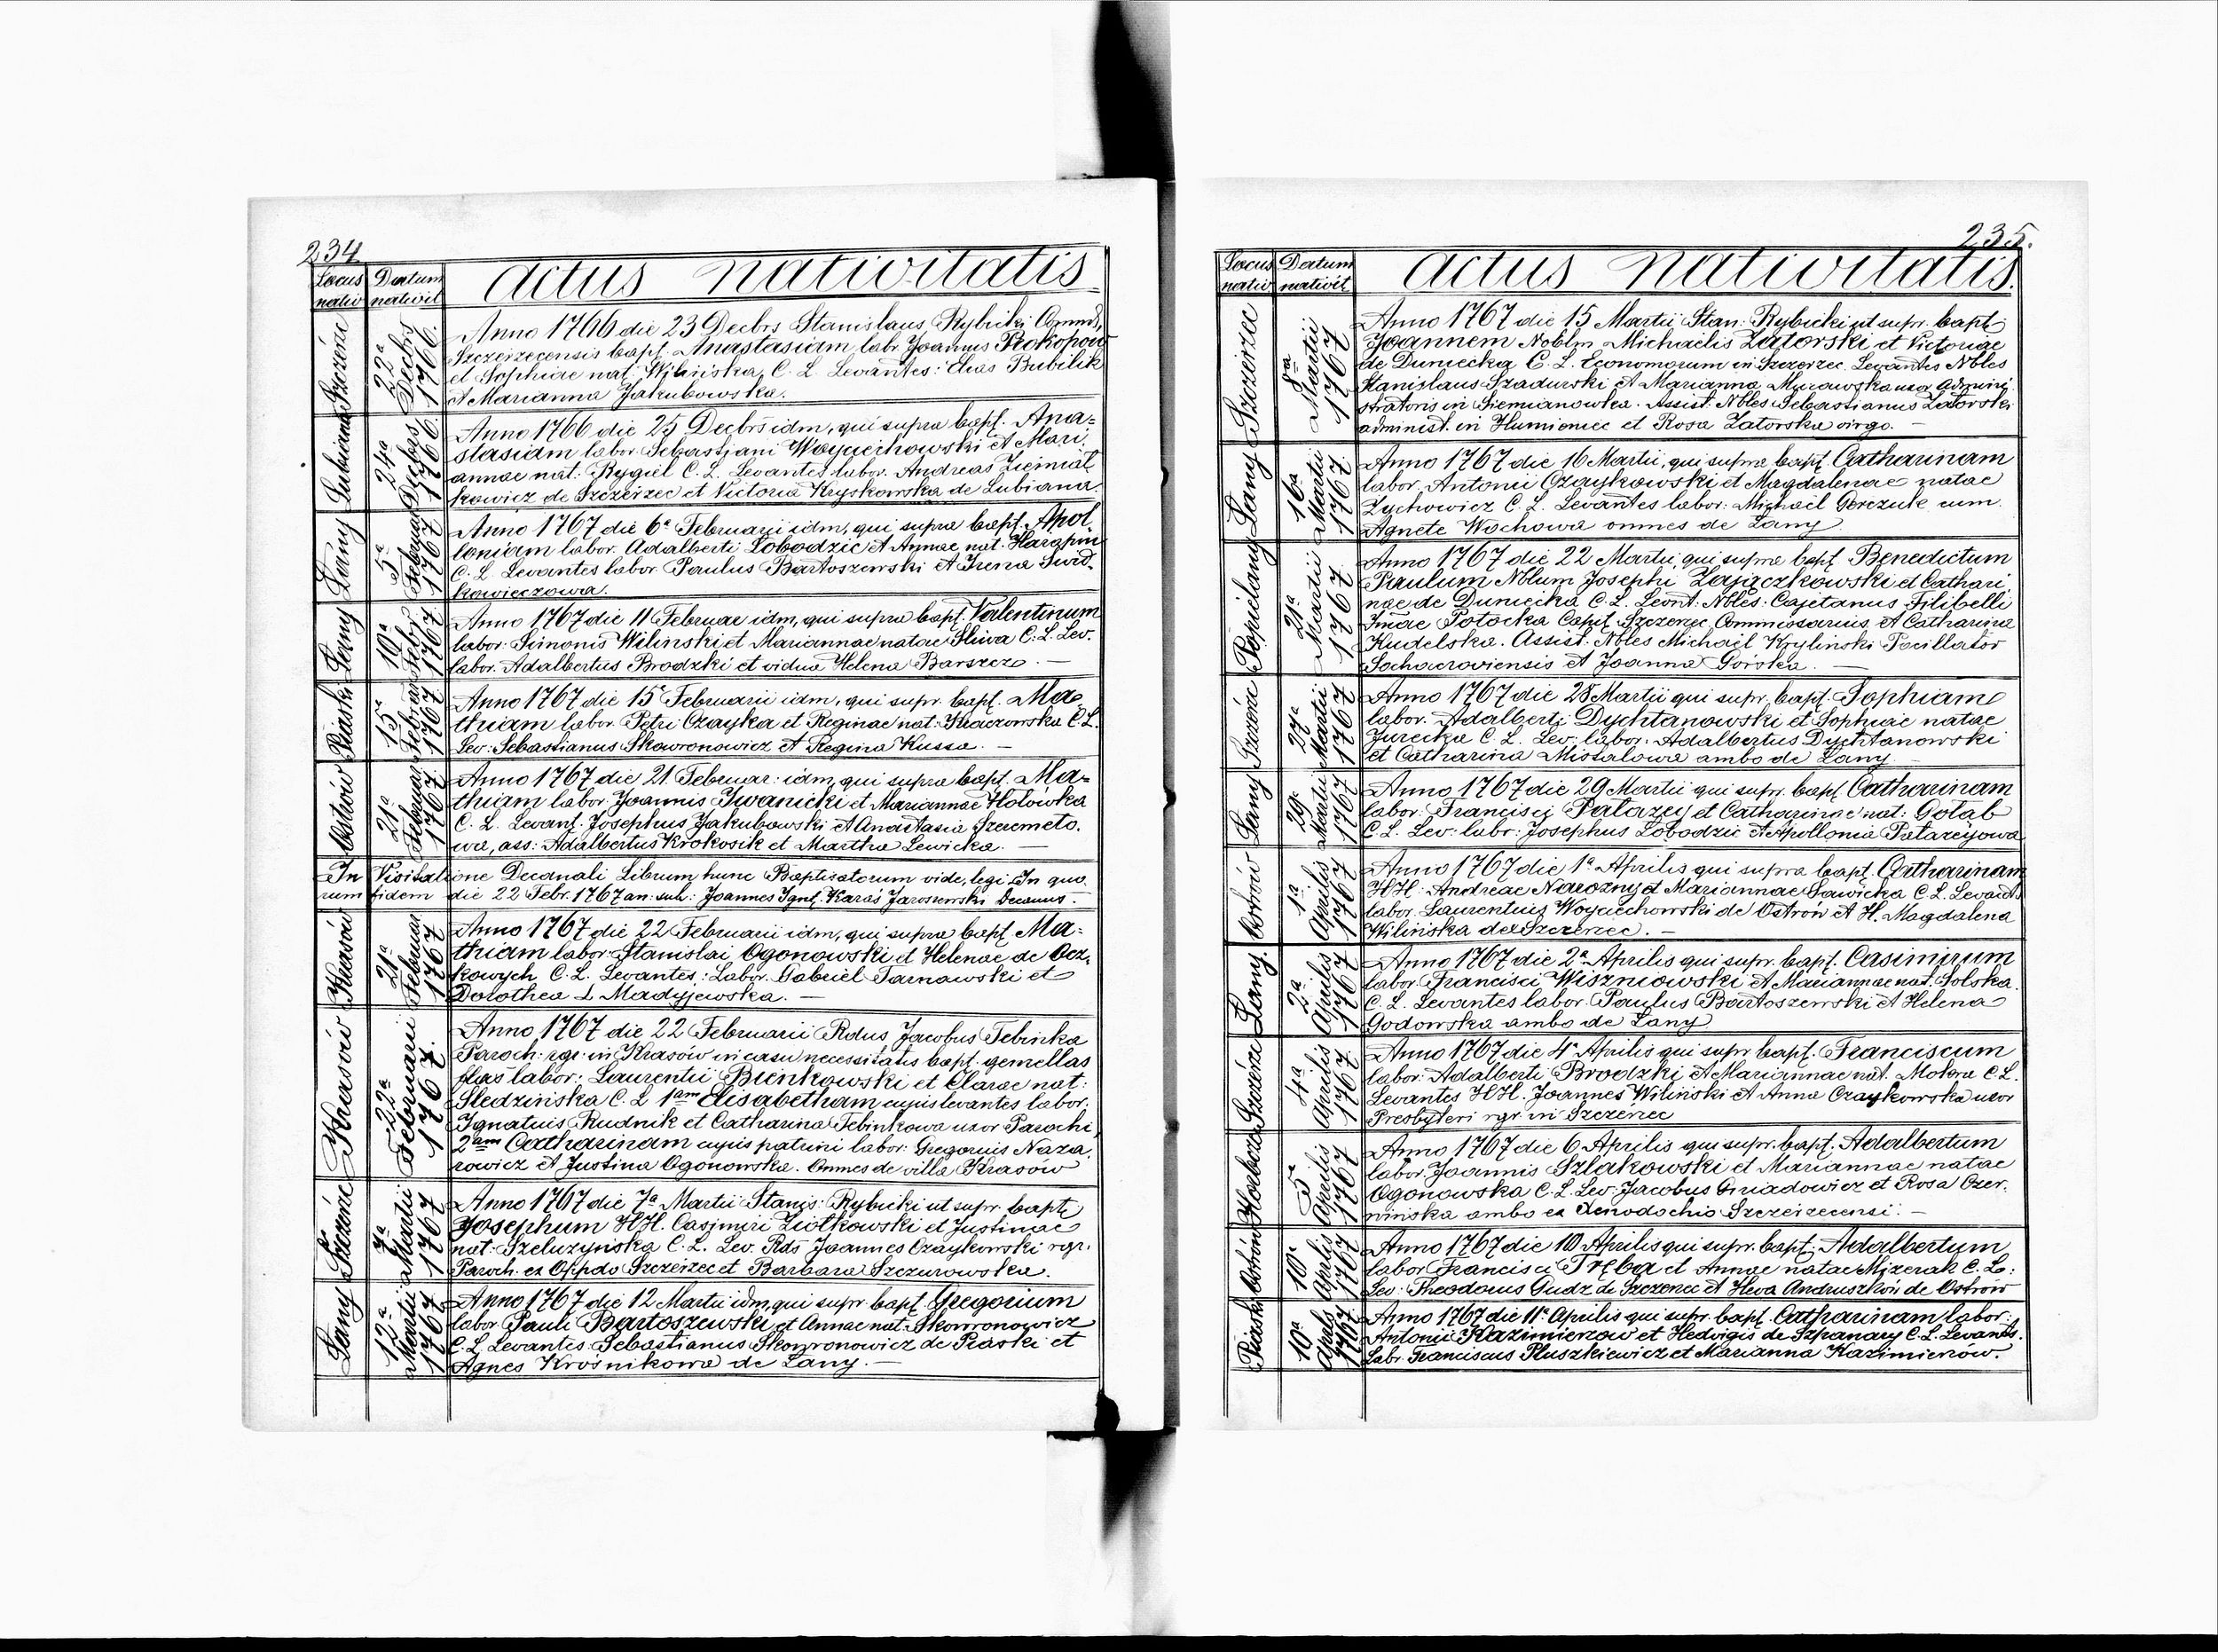 234
Locus nativ
Datum nativit
actus nativitatis
Szczerzec
22ª Decbrs 1766.
Anno 1766 die 23 Decbrs Stanislaus Rybicki Commd.
Szczerzecensis bapt. Anastasiam labr. Joannis Prokopow
et Sophiae nat. Wilińska, C. L. Levantes: Elias Bubilik
et Marianna Jakubowska.
Lubiana
24ª Decbrs 1766.
Anno 1766 die 25 Decbrs idm, qui supra bapt. Ana=
stasiam labor. Sebastjani Woyciechowski et Mari.
annae nat: Rygiel C. L. Levantes labor. Andreas
kowicz de Szczerzec et Victoria Kryskowska de Lubiana.
Łany
5ª Februar 1767
Anno 1767 die 6ª Februarii idm, qui supra bapt. Apol.
loniam labor. Adalberti Łobodzic et Annae nat. Harapin
C. L. Levantes labor. Paulus Bartoszewski et Irena Swid.
kowiczowa.
Łany
10ª Febr. 1767
Anno 1767 die 11 Februar idm, qui supra bapt. Valentinum
labor: Simonis Wilinski et Mariannae natae Śliwa C. L. Lev.
labor. Adalbertus Brodzki et vidua Helena Barszcz. —
Piaski
15ª Februar 1767
Anno 1767 die 15 Februarii idm, qui supr. bapt. Ma
thiam labor. Petri Czayka et Reginae nat: Kraczowska C. L.
Lev: Sebastianus Skowronowicz et Regina Kussa. —
Ostrów
21ª Februar 1767
Anno 1767 die 21. Februar: idm, qui supra bapt. Ma=
thiam labor Joannis Iwanicki et Mariannae Hołówka
C. L. Levant. Josephus Jakubowski et Anastasia Szeremeto.
wa, ass: Adalbertus Krokosik et Martha Lewicka. —
In Visitatione Decanali Librum hunc Baptisatorum vide, legi. In quo.
rum fidem die 22 Febr. 1767 an: sub: Joannes Ignt. Karaś Jaroszewski Decanus.
Krasów
21ª Februar 1767
Anno 1767 die 22 Februarii idm, qui supra bapt. Ma=
thiam labor. Stanislai Ogonowski et Helenae de Ocz.
kowych C. L. Levantes: Labor. Gabriel Tarnawski et
Dorothea L Madyjewska. —
Krasów
22ª Februarii 1767.
Anno 1767 die 22 Februarii Rdus Jacobus Tebinka
Paroch: rgr: in Krasów in casu necessitatis bapt. gemellas
flias labor: Laurentii Bieńkowski et Clarae nat:
Śledzińska C. L 1am Elisabetham cujus levantes labor.
Ignatius Rudnik et Catharina Tebinkowa uxor Parochi,
2am Catharinam cujus patrini labor: Gregorius Naza.
rowicz et Justina Ogonowska. Omnes de villa Krasów
Szczerzec
7ª Martii 1767
Anno 1767 die 7ª Martii Stanis: Rybicki ut supr. bapt.
Josephum HH. Casimiri Ziołkowski et Justinae
nat: Szeluzyńska C. L. Lev. Rds Joannes Czaykowski rgr.
Paroch. ex Oppdo Szczerzec et Barbara Szczurowska.
Łany
12ª Martii 1767
Anno 1767 die 12 Martii idm, qui supr. bapt. Gregorium
labor Pauli Bartoszewski et Annae nat. Skowronowicz
C. L. Levantes: Sebastianus Skowronowicz de Piaski et
Agnes Krośnikowa de Łany. —
235.
Locus nativ
Datum nativit.
actus nativitatis.
Szczerzec
8va Martii 1767
Anno 1767 die 15 Martii Stan: Rybicki ut supr. bapt.
Joannem Noblm Michaelis Zatorski et Victoriae
de Duniecka C. L. Economorum in Szczerzec. Levantes Nbles
Stanislaus Szadurski et Marianna Murawska uxor Admini.
stratoris in Siemianowka. Assist. Nbles Sebastianus Zatorski
administ. in Humieniec et Rosa Zatorska virgo. —
Łany
16ª Martii 1767.
Anno 1767 die 16 Martii, qui supra bapt. Catharinam
labor. Antonii Czaykowski et Magdalenae natae
Zychowicz C. L. Levantes labor: Michael Gorczuk cum
Agnete Wochowa omnes de Łany
Popielany
21ª Martii 1767.
Anno 1767 die 22 Martii, qui supra bapt. Benedictum
Paulum Nblum Josephi Zajączkowski et Cathari
nae de Duniecka C. L. Levnt: Nbles. Cajetanus Filibelli
Potocka Capit Szczerzec Commissarius et Catharina
Kudelska. Assist. Nbles Michael Krylinski Pocillator
Sochaczoviensis et Joanna Gorska. —
Szczerzec
27ª Martii 1767
Anno 1767 die 28 Martii qui supr. bapt. Sophiam
labor. Adalberti Dychtanowski et Sophiae natae
Jurecka C. L. Lev: labor. Adalbertus Dychtanowski
et Catharina Missalowa ambo de Łany
Łany
29ª Martii 1767
Anno 1767 die 29 Martii qui supr. bapt Catharinam
labor: Francisci Patarzy et Catharinae nat: Gołab
C. L. Lev. labr: Josephus Łobodzic et Apollonia Patarcyowa
Ostrów
1ª Aprilis 1767
Anno 1767 die 1ª Aprilis qui supra bapt. Catharinam
HH: Andreae Narozny et Mariannae Sawicka C. L. Levants
labor. Laurentius Woyciechowski de Ostrów et H. Magdalena
Wilińska de Szczerzec. —
Łany.
2ª Aprilis 1767
Anno 1767 die 2ª Aprilis qui supr. bapt. Casimirum
labor. Francisci Wiszniowski et Mariannae nat. Solska.
C. L. Levantes labor. Paulus Bartoszewski et Helena
Godowska ambo de Łany
Szczerzec
4ª Aprilis 1767
Anno 1767 die 4ª Aprilis qui supr bapt. Franciscum
labor: Adalberti Brodzki et Mariannae nat. Mokra C. L.
Levantes HH. Joannes Wiliński et Anna Czaykowska uxor
Presbyteri rgr. in Szczerzec
Horbacze
5ª Aprilis 1767
Anno 1767 die 6 Aprilis qui supr. bapt. Adalbertum
labor. Joannis Szlakowski et Mariannae natae
Ogonowska C. L. Lev: Jacobus Gniadowicz et Rosa Czer.
wińska ambo ex Xenodochio Szczerzecensi. —
Ostrów
10ª Aprilis 1767
Anno 1767 die 10 Aprilis qui supr. bapt. Adalbertum
labor Francisci Tręba et Annae natae Mizerak C. L:
Lev: Theodorus Gudz de Szczerzec et Heva Andruszków de Ostrów
Piaski
10ª Aprils 1767
Anno 1767 die 11ª Aprilis qui supr. bapt. Catharinam labor:
Antonii Kazimierzow et Hedvigis de Szpanary C. L. Levants.
Labr. Franciscus Pluszkiewicz et Marianna Kazimierzów.